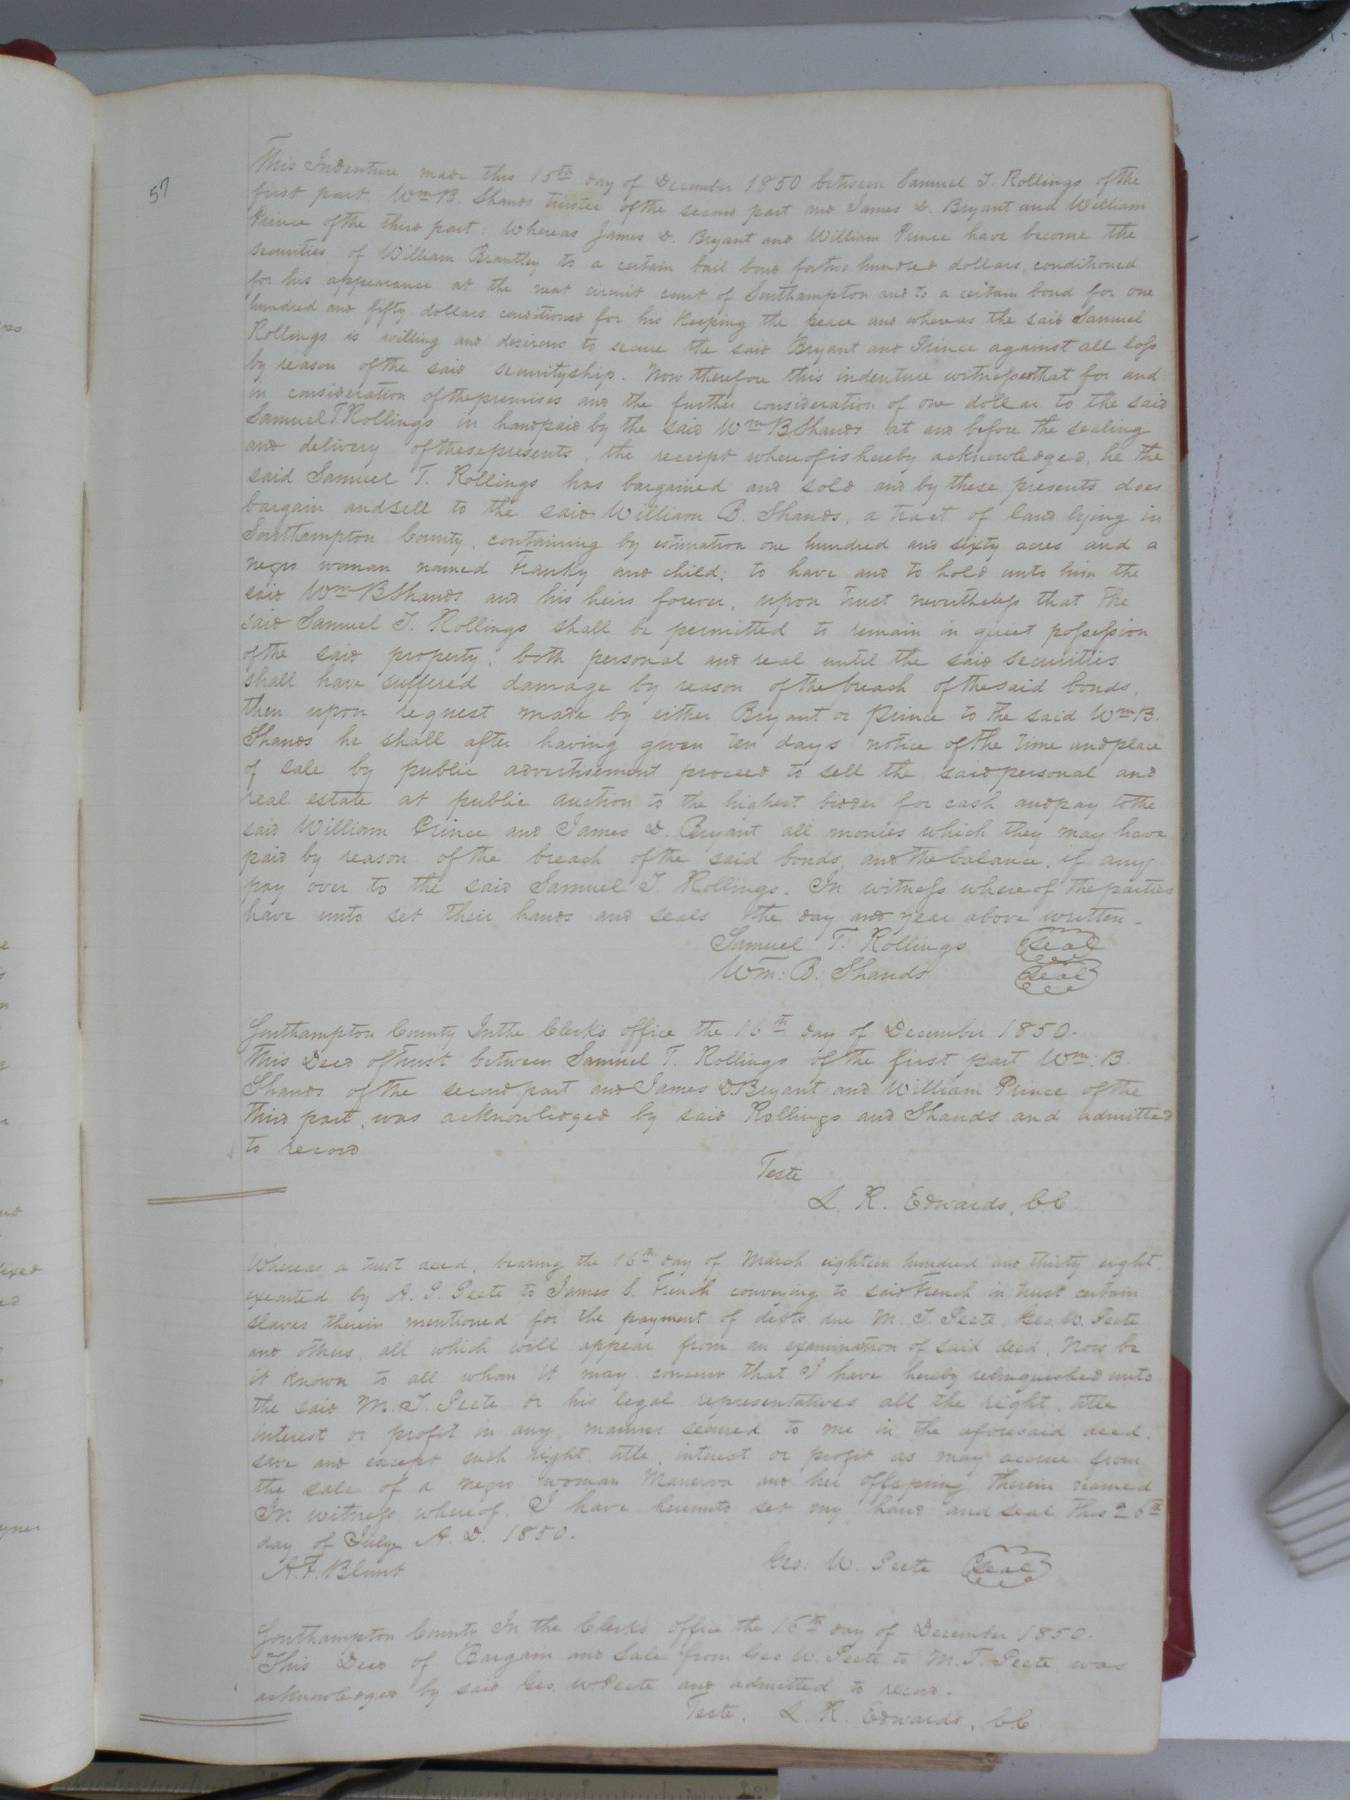 57
This Indenture made this 15th day of December 1850 between Samuel T. Rollings of the
first part, Wm B. Shands trustee of the second part and James D. Bryant and William
Prince of the third part: Whereas James D. Bryant and William Prince have become the
securities of William Brantley to a certain bail bond for two hundred dollars, conditioned
for his appearance at the next circuit court of Southampton and to a certain bond for one
hundred and fifty dollars conditioned for his keeping the peace and whereas the said Samuel
Rollings is willing and desirous to secure the said Bryant and Prince against all loss
by reason of the said securityship. Now therefore this indenture witnesseth that for and
in consideration of the premises and the further consideration of one dollar to the said
Samuel T Rollings in hand paid by the said Wm B Shands at and before the sealing
and delivery of these presents, the receipt whereof is hereby acknowledged, he the
said Samuel T. Rollings has bargained and sold and by these presents does
bargain and sell to the said William B. Shands, a tract of land lying in
Southampton County, containing by estimation one hundred and sixty acres and a
negro woman named Franky and child; to have and to hold unto him the
said Wm B Shands and his heirs forever, upon trust nevertheless that the
said Samuel T. Rollings shall be permitted to remain in quiet possession
of the said property, both personal and real until the said securities
shall have suffered damage by reason of the breach of the said bonds,
then upon request made by either Bryant or Prince to the said Wm B.
Shands he shall after having given ten days notice of the time and place
of sale by public advertisement proceed to sell the said personal and
real estate at public auction to the highest bidder for cash and pay to the
said William Prince and James D. Bryant all monies which they may have
paid by reason of the breach of the said bonds, and the balance, if any
pay over to the said Samuel T. Rollings. In witness whereof the parties
have unto set their hands and seals the day and year above written.
Samuel T. Rollings seal
Wm: B. Shands seal
Southampton County In the Clerk's office the 16th day of December 1850.
This Deed of trust between Samuel T. Rollings of the first part Wm: B.
Shands of the second part and James D. Bryant and William Prince of the
third part, was acknowledged by said Rollings and Shands and admitted
to record
Teste
L. R. Edwards, C.C.
Whereas a trust deed, bearing the 16th day of March eighteen hundred and thirty eight,
executed by A. J. Peete to James S. French conveying to said French in trust certain
slaves therein mentioned for the payment of debts due M. T. Peete, Geo. W. Peete
and others, all which will appear from an examination of said deed. Now be
it known to all whom it may concern that I have hereby relinquished unto
the said M. T. Peete or his legal representatives all the right, title
interest or profit in any manner secured to me in the aforesaid deed,
save and except such right, title, interest or profit as may accrue from
the sale of a negro woman Manerva and her offspring therein named
In witness whereof, I have hereunto set my hand and seal this 26th
day of July A. D. 1850.
A. F. Blunt Geo. W. Peete seal
Southampton County In the Clerk's office the 16th day of December 1850.
This Deed of Bargain and Sale from Geo W. Peete to M. T. Peete was
acknowledged by said Geo. W Peete and admitted to record.
Teste. L. R. Edwards, C.C.